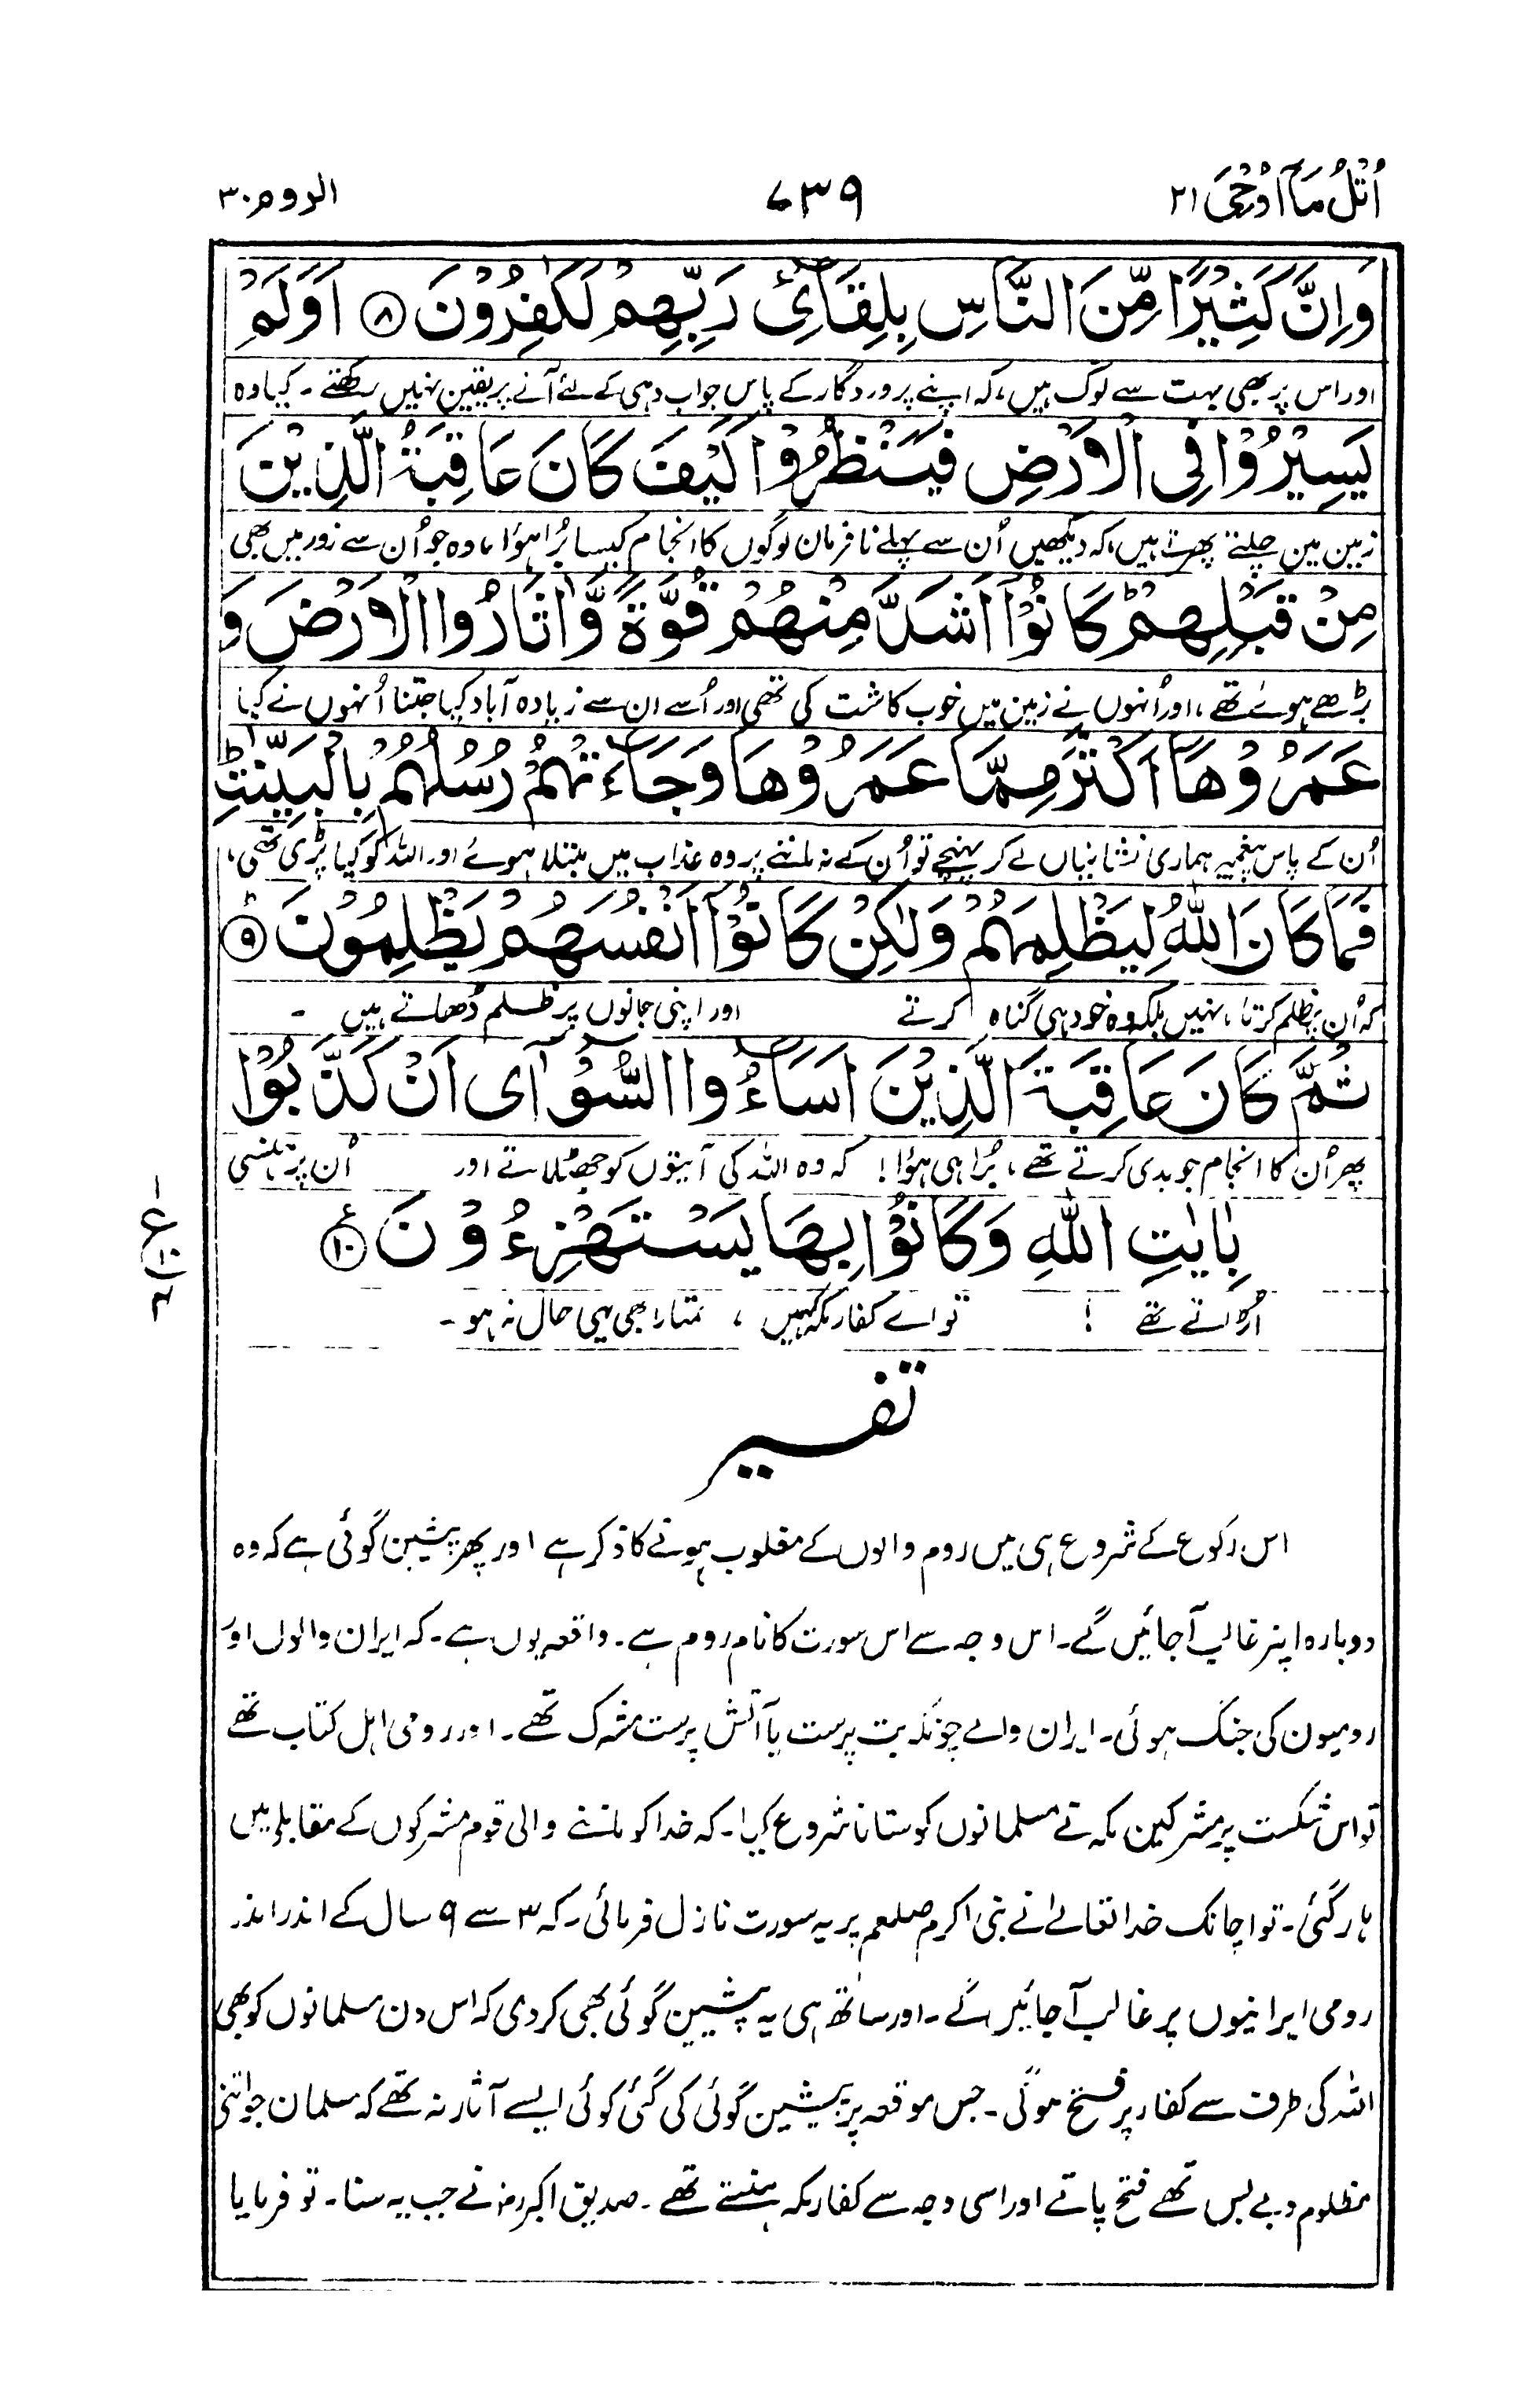 اُتْلُ مَآ اُوْحِیَ ۲۱
۷۳۹
الروم ۳۰
وَاِنَّ كَثِيْرًا مِّنَ النَّاسِ بِلِقَآئِ رَبِّهِمْ لَكٰفِرُوْنَ ۸ اَوَلَمْ
اور اس پر بھی بہت سے لوگ ہیں، کہ اپنے پروردگار کے پاس جواب دہی کے لئے آنے پر یقین نہیں رکھتے ۔ کیا وہ
يَسِيْرُوْا فِى الْاَرْضِ فَيَنْظُرُوْا كَيْفَ كَانَ عَاقِبَةُ الَّذِيْنَ
زمین مین چلتے پھرتے ہیں، کہ دیکھیں اُن سے پہلے نافرمان لوگوں کا انجام کیسا بُرا ہوٗا، وہ جو اُن سے زور میں بھی
مِنْ قَبْلِهِمْ ؕ كَانُوْٓا اَشَدَّ مِنْهُمْ قُوَّةً وَّاَثَارُوا الْاَرْضَ وَ
بڑھے ہوئے تھے، اور اُنہوں نے زمین میں خوب کاشت کی تھی اور اُسے ان سے زیادہ آباد کیا جتنا اُنہوں نے کیا
عَمَرُوْهَآ اَكْثَرَ مِمَّا عَمَرُوْهَا وَجَآءَتْهُمْ رُسُلُهُمْ بِالْبَيِّنٰتِ ؕ
اُن کے پاس پیغمبر ہماری نشانیاں لے کر پہنچے تو اُن کے نہ ماننے پر وہ عذاب میں مبتلا ہوئے اور اللہ کو کیا پڑی تھی،
فَمَا كَانَ اللّٰهُ لِيَظْلِمَهُمْ وَلٰكِنْ كَانُوْٓا اَنْفُسَهُمْ يَظْلِمُوْنَ ؕ ۹
کہ اُن پر ظلم کرتا، نہیں بلکہ وہ خود ہی گناہ کرتے اور اپنی جانوں پر ظلم ڈھاتے ہیں ۔
ثُمَّ كَانَ عَاقِبَةَ الَّذِيْنَ اَسَآءُوا السُّوْٓاٰى اَنْ كَذَّبُوْا
پھر اُن کا انجام جو بدی کرتے تھے، بُرا ہی ہوٗا! کہ وہ اللہ کی آیتوں کو جھٹلاتے اور اُن پر ہنسی
بِاٰيٰتِ اللّٰهِ وَكَانُوْا بِهَا يَسْتَهْزِءُوْنَ ۱۰ ع
اُڑاتے تھے ! تو اے کفار مکہ کہیں ، تمہارا بھی یہی حال نہ ہو ۔
تفسیر
اس رکوع کے شروع ہی میں روم والوں کے مغلوب ہونے کا ذکر ہے اور پھر پیشین گوئی ہے کہ وہ
دوبارہ اپنر غالب آجائیں گے۔ اس وجہ سے اس سورت کا نام روم ہے۔ واقعہ یوں ہے۔ کہ ایران والوں اور
رومیون کی جنگ ہوئی۔ ایران والے چونکہ بت پرست یا آتش پرست مشرک تھے۔ اور رومی اہل کتاب تھے
تو اس شکست پر مشرکین مکہ تے مسلمانوں کو ستانا شروع کیا۔ کہ خدا کو ماننے والی قوم مشرکوں کے مقابلہ میں
ہار گئی۔ تو اچانک خدا تعالےٰ نے نبی اکرم صلعم پر یہ سورت نازل فرمائی۔ کہ ۳ سے ۹ سال کے اندر اندر
رومی ایرانیوں پر غالب آجائیں گے۔ اور ساتھ ہی یہ پیشین گوئی بھی کر دی کہ اس دن مسلمانوں کو بھی
اللہ کی طرف سے کفار پر فتح ہوگی۔ جس موقعہ پر یہ پیشین گوئی کی گئی کوئی ایسے آثار نہ تھے کہ مسلمان جو اتنے
مظلوم و بے بس تھے فتح پاتے اور اسی وجہ سے کفار مکہ ہنستے تھے ۔ صدیق اکبر رضہ نے جب یہ سنا۔ تو فرمایا